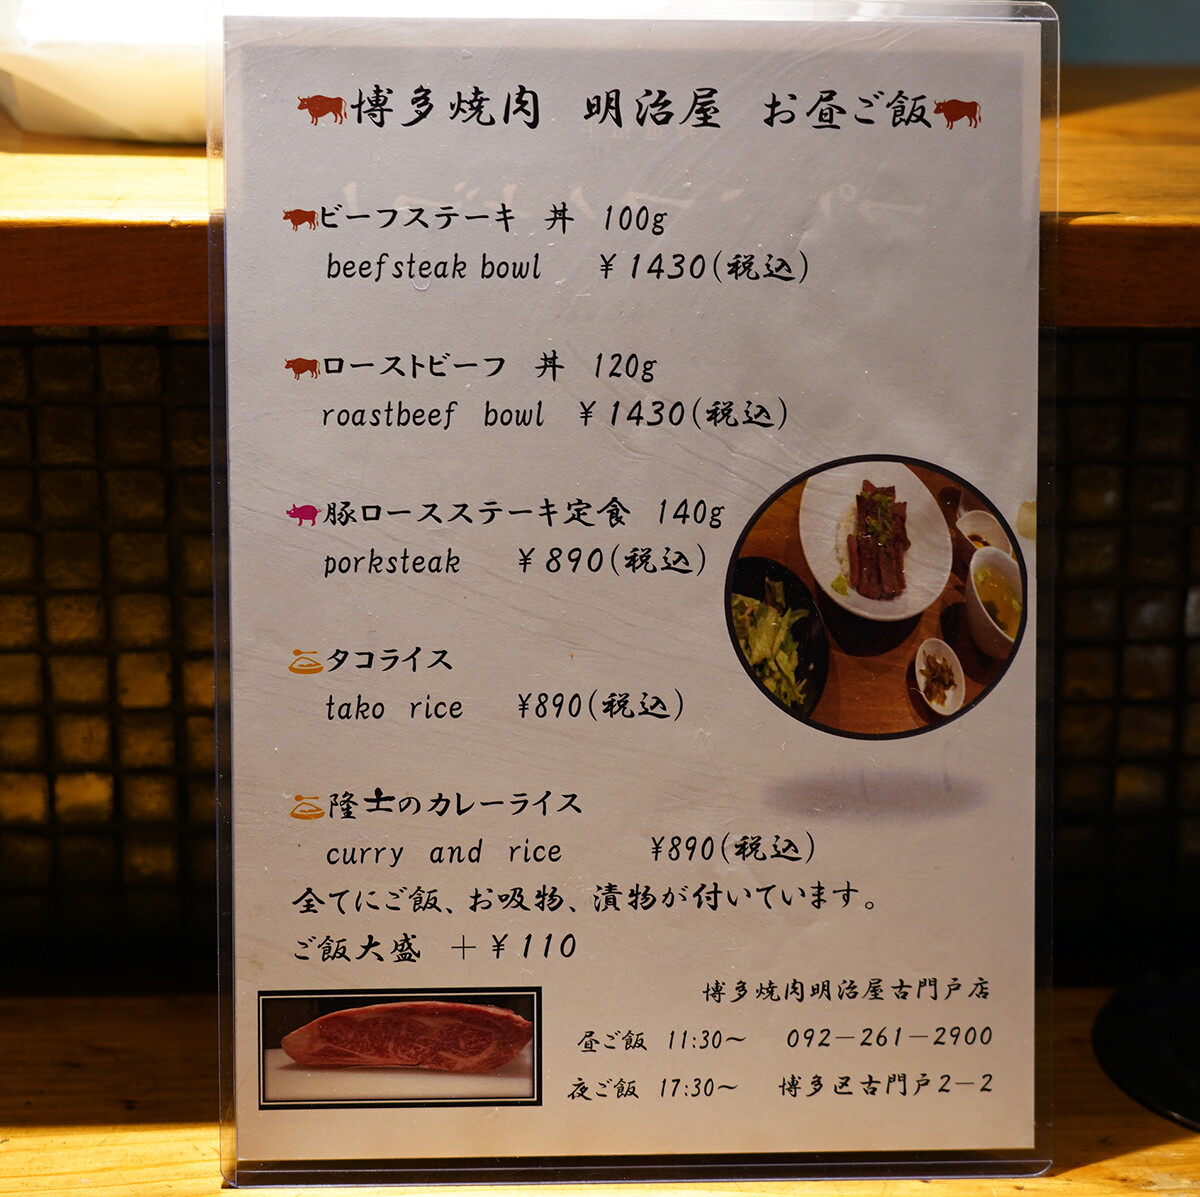 博多焼肉 明治屋 お昼ご飯
ビーフステーキ 丼 100g
beefsteak bowl ￥1430(税込)
ローストビーフ 丼 120g
roastbeef bowl ￥1430(税込)
豚ロースステーキ定食 140g
porksteak ￥890(税込)
タコライス
tako rice ￥890(税込)
隆士のカレーライス
curry and rice ￥890(税込)
全てにご飯、お吸物、漬物が付いています。
ご飯大盛 ＋￥110
博多焼肉明治屋古門戸店
昼ご飯 11:30～ 092－261－2900
夜ご飯 17:30～ 博多区古門戸2－2